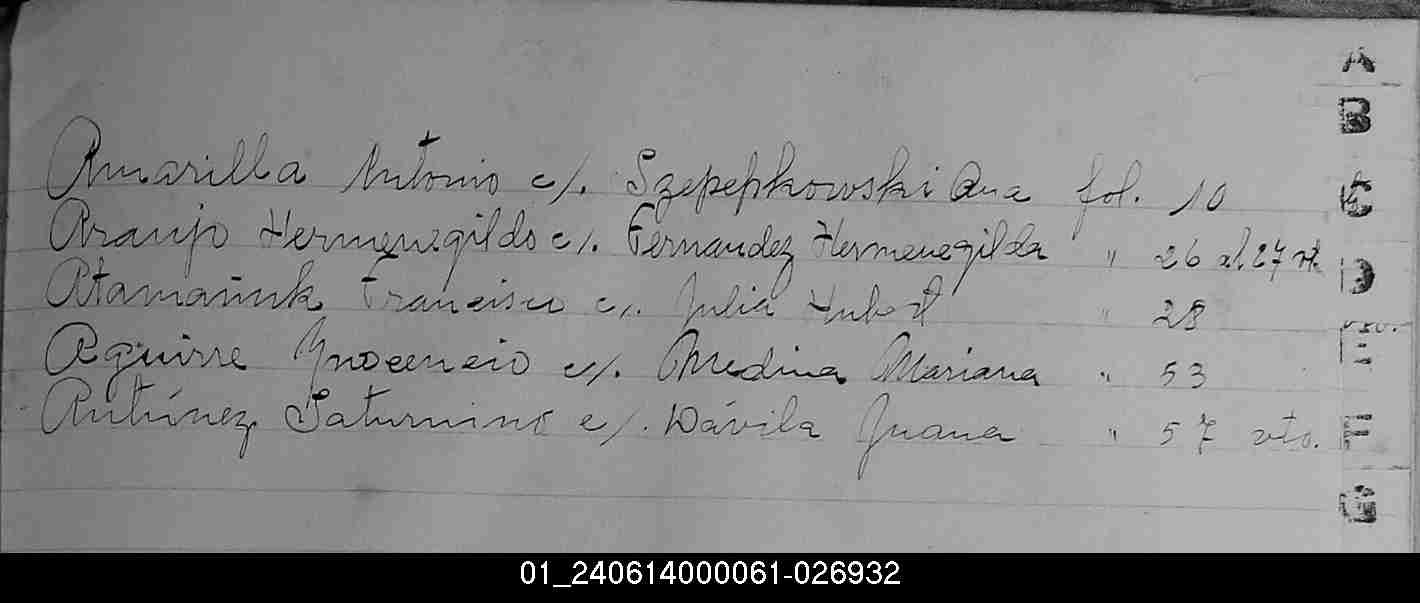 A
B
Amarilla Antonio c/. Szepepkowski Ana fol. 10
C
Araujo Hermenegildo c/. Fernandez Hermenegilda " 26 al 27 vt.
D
Atamañuk Francisco c/. Julia Hubert " 28
vto.
E
Aguirre Ynocencio c/. Medina Mariana " 53
Antúnez Saturnino c/. Dávila Juana " 57 vto.
F
G
01_240614000061-026932